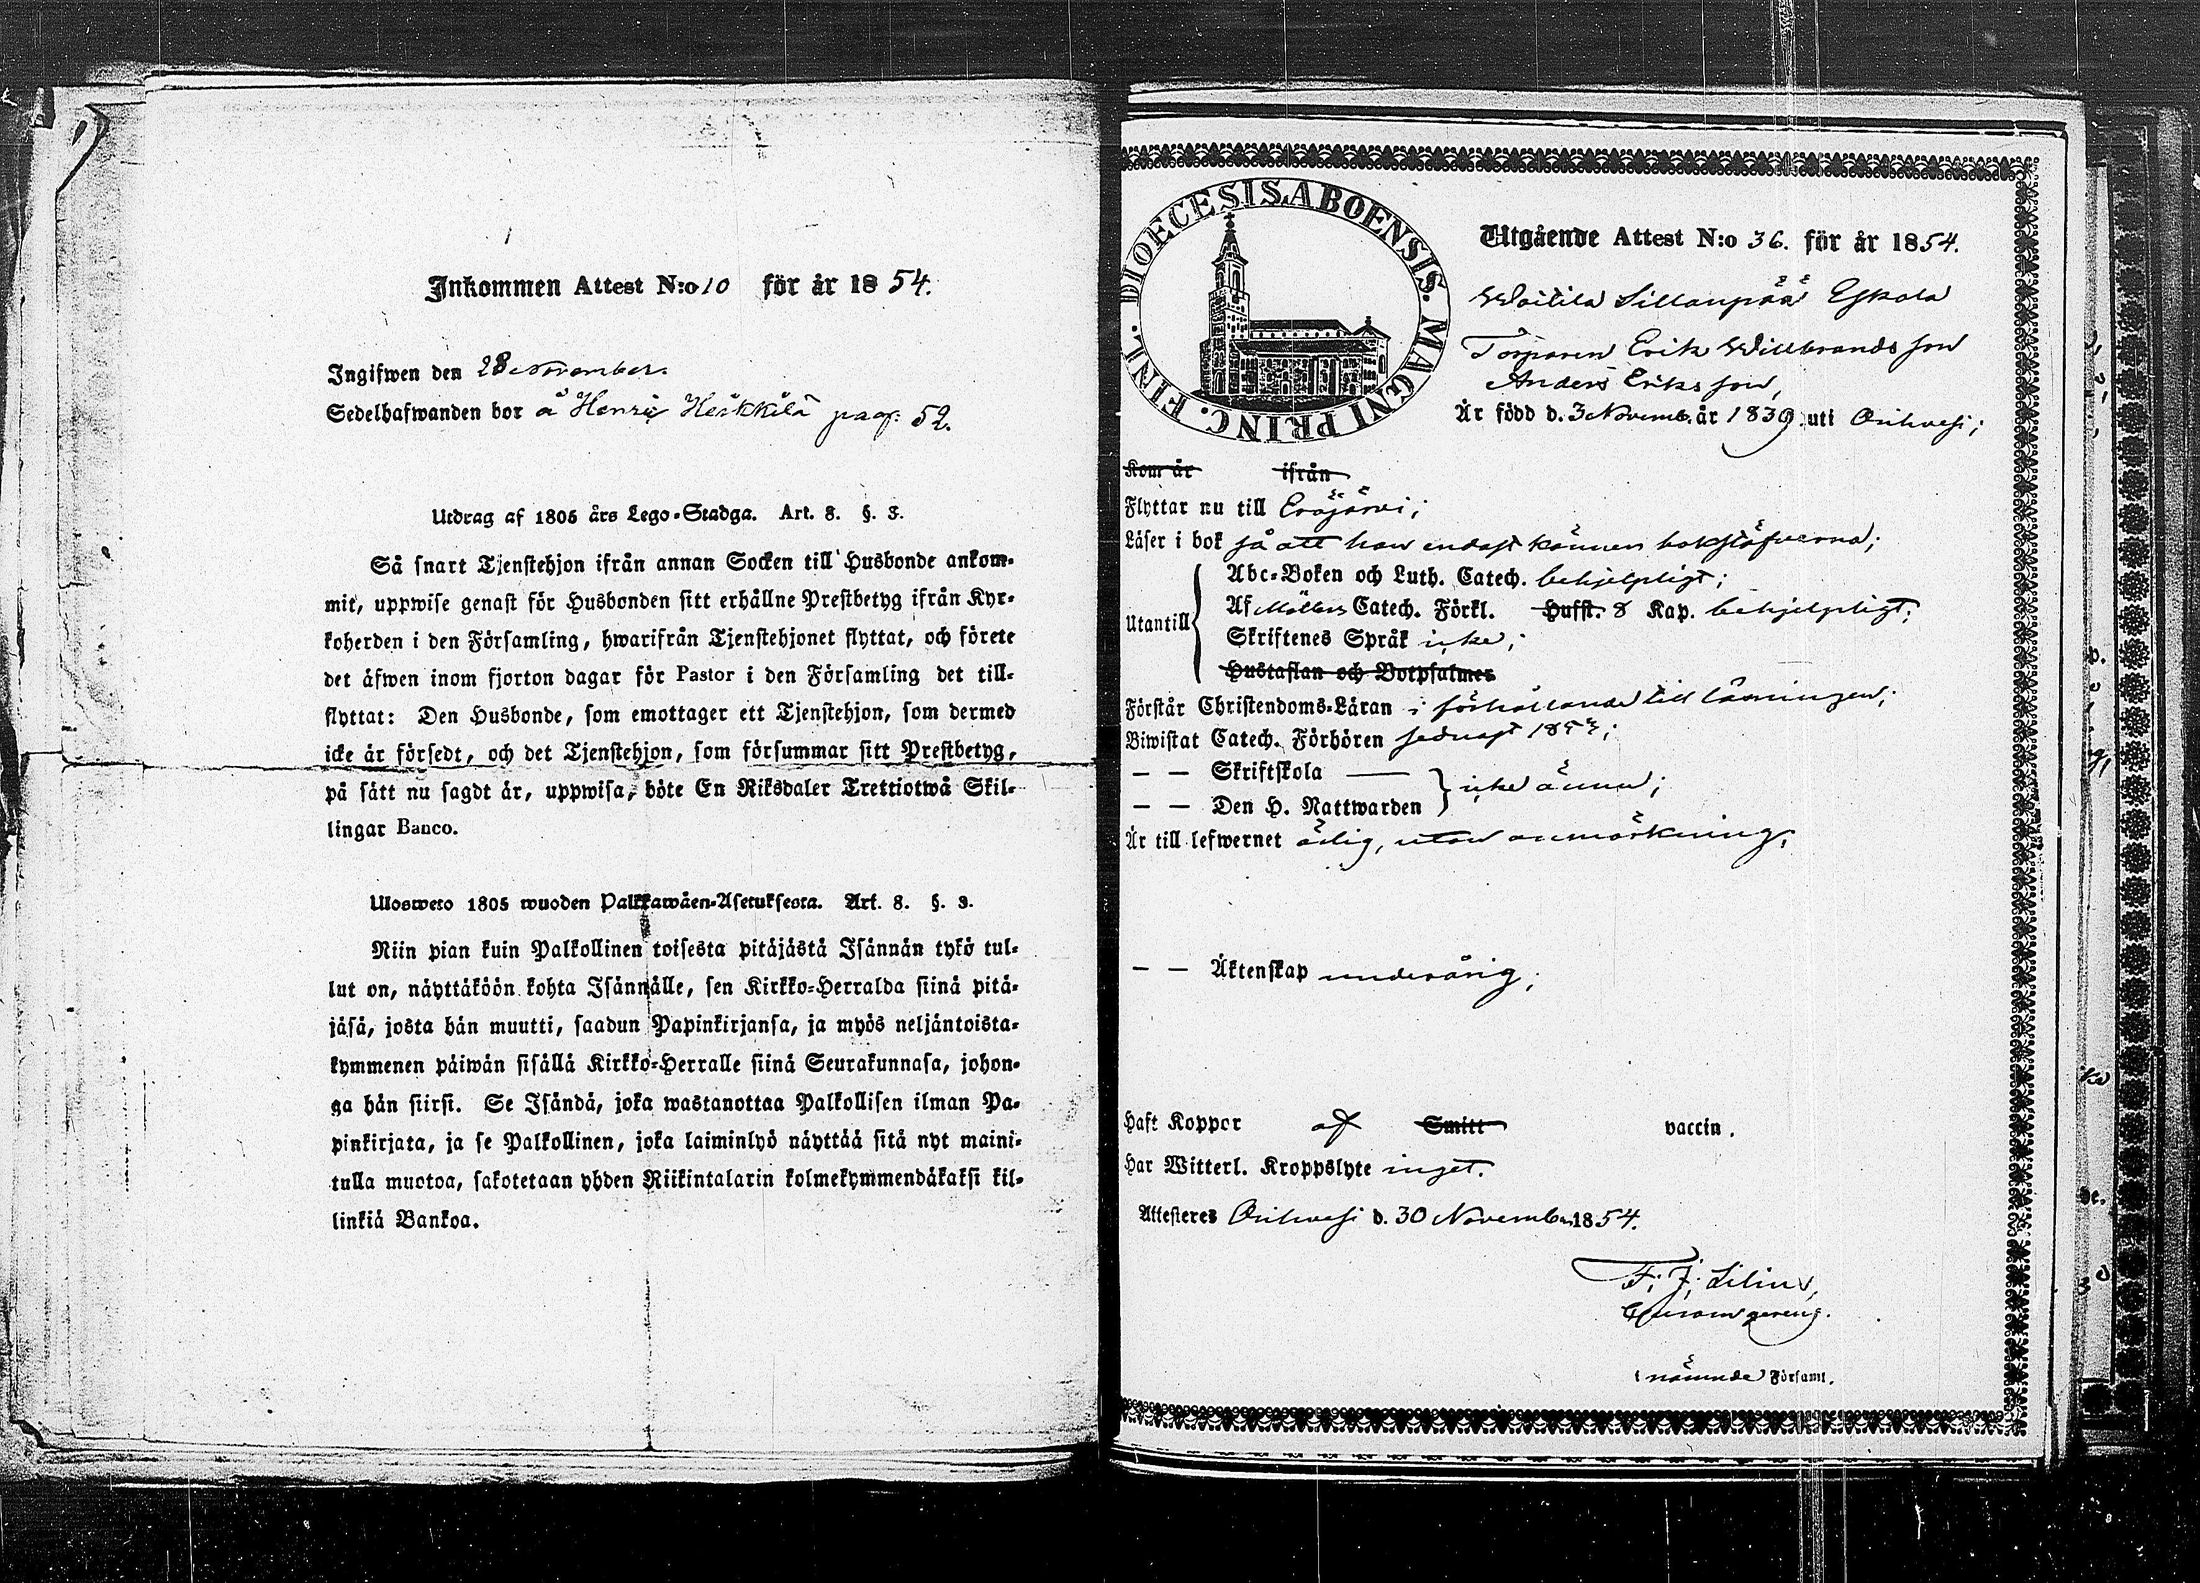 Inkommen Attest N:o 10 för år 1854.
Ingifwen den 28 November.
Sedelhafwanden bor å Henri Heikkilä pag: 52.
Utdrag af 1805 års Lego-Stadga. Art. 8. §. 3.
Så snart Tjenstehjon ifrån annan Socken till Husbonde ankom-
mit, uppwise genast för Husbonden sitt erhållne Prestbetyg ifrån Kyr-
koherden i den Församling, hwarifrån Tjenstehjonet flyttat, och förete
det äfwen inom fjorton dagar för Pastor i den Församling det till-
flyttat: Den Husbonde, som emottager ett Tjenstehjon, som dermed
icke är försedt, och det Tjenstehjon, som försummar sitt Prestbetyg,
på sätt nu sagdt är, uppwisa, böte En Riksdaler Trettiotwå Skil-
lingar Banco.
Ulosweto 1805 wuoden Palkkawäen-Asetuksesta. Art. 8. §. 3.
Niin pian kuin Palkollinen toisesta pitäjästä Isännän tykö tul-
lut on, näyttäköön kohta Isännälle, sen Kirkko-Herralda siinä pitä-
jäsä, josta hän muutti, saadun Papinkirjansa, ja myös neljäntoista-
kymmenen päiwän sisällä Kirkko-Herralle siinä Seurakunnasa, johon-
ga hän siirsi. Se Isändä, joka wastanottaa Palkollisen ilman Pa-
pinkirjata, ja se Palkollinen, joka laiminlyö näyttää sitä nyt maini-
tulla muotoa, sakotetaan yhden Riikintalarin kolmekymmendäkaksi kil-
linkiä Bankoa.
DIOECESIS ABOENSIS. MAGNI PRINC. FINL.
Utgående Attest N:o 36. för år 1854.
Woitila Sillanpää Eskola
Torparen Erik Willbrandsson
Anders Eriksson,
Är född d. 3 Novemb. år 1839 uti Orihvesi;
Kom år ifrån
Flyttar nu till Eräjärvi;
Läser i bok så att han endast känner bokstäfverna;
Abc-Boken och Luth. Catech. behjelpligt;
Utantill Af Möllers Catech. Förkl. Hufst. 8 Kap. behjelpligt;
Skriftenes Språk icke;
Hustaflan och Botpsalmer
Förstår Christendoms-Läran i förhållande till läsningen;
Biwistat Catech. Förhören sednast 1853;
— — Skriftskola —
icke ännu;
— — Den H. Nattwarden
Är till lefwernet ärlig, utan anmärkning.
— — Äktenskap underårig;
Haft Koppor af Smitt vaccin.
Har Witterl. Kroppslyte inget.
Attesteres Orihvesi d. 30 November 1854.
F. J. Lilius,
i nämnde Församl.